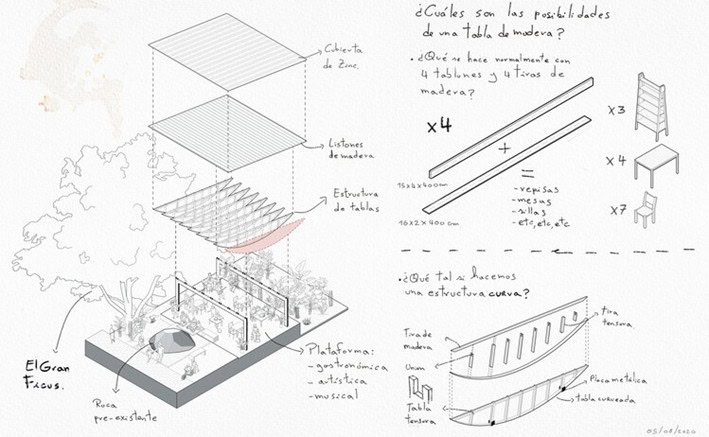 Cubierta
de Zinc.
Listones
de madera
Estructura
de tablas
El Gran
Ficus.
Roca
pre-existente
Plataforma:
- gastronómica
- artística
- musical
¿Cuáles son las posibilidades
de una tabla de madera?
• ¿Qué se hace normalmente con
4 tablones y 4 tiras de
madera?
x4
+
=
15x4x400cm
10x2x400cm
- repisas
- mesas
- sillas
- etc, etc, etc
x3
x4
x7
• ¿Qué tal si hacemos
una estructura curva?
Tira de
madera
tira
tensora
Union
Placa metálica
Tabla
tensora
tabla curveada